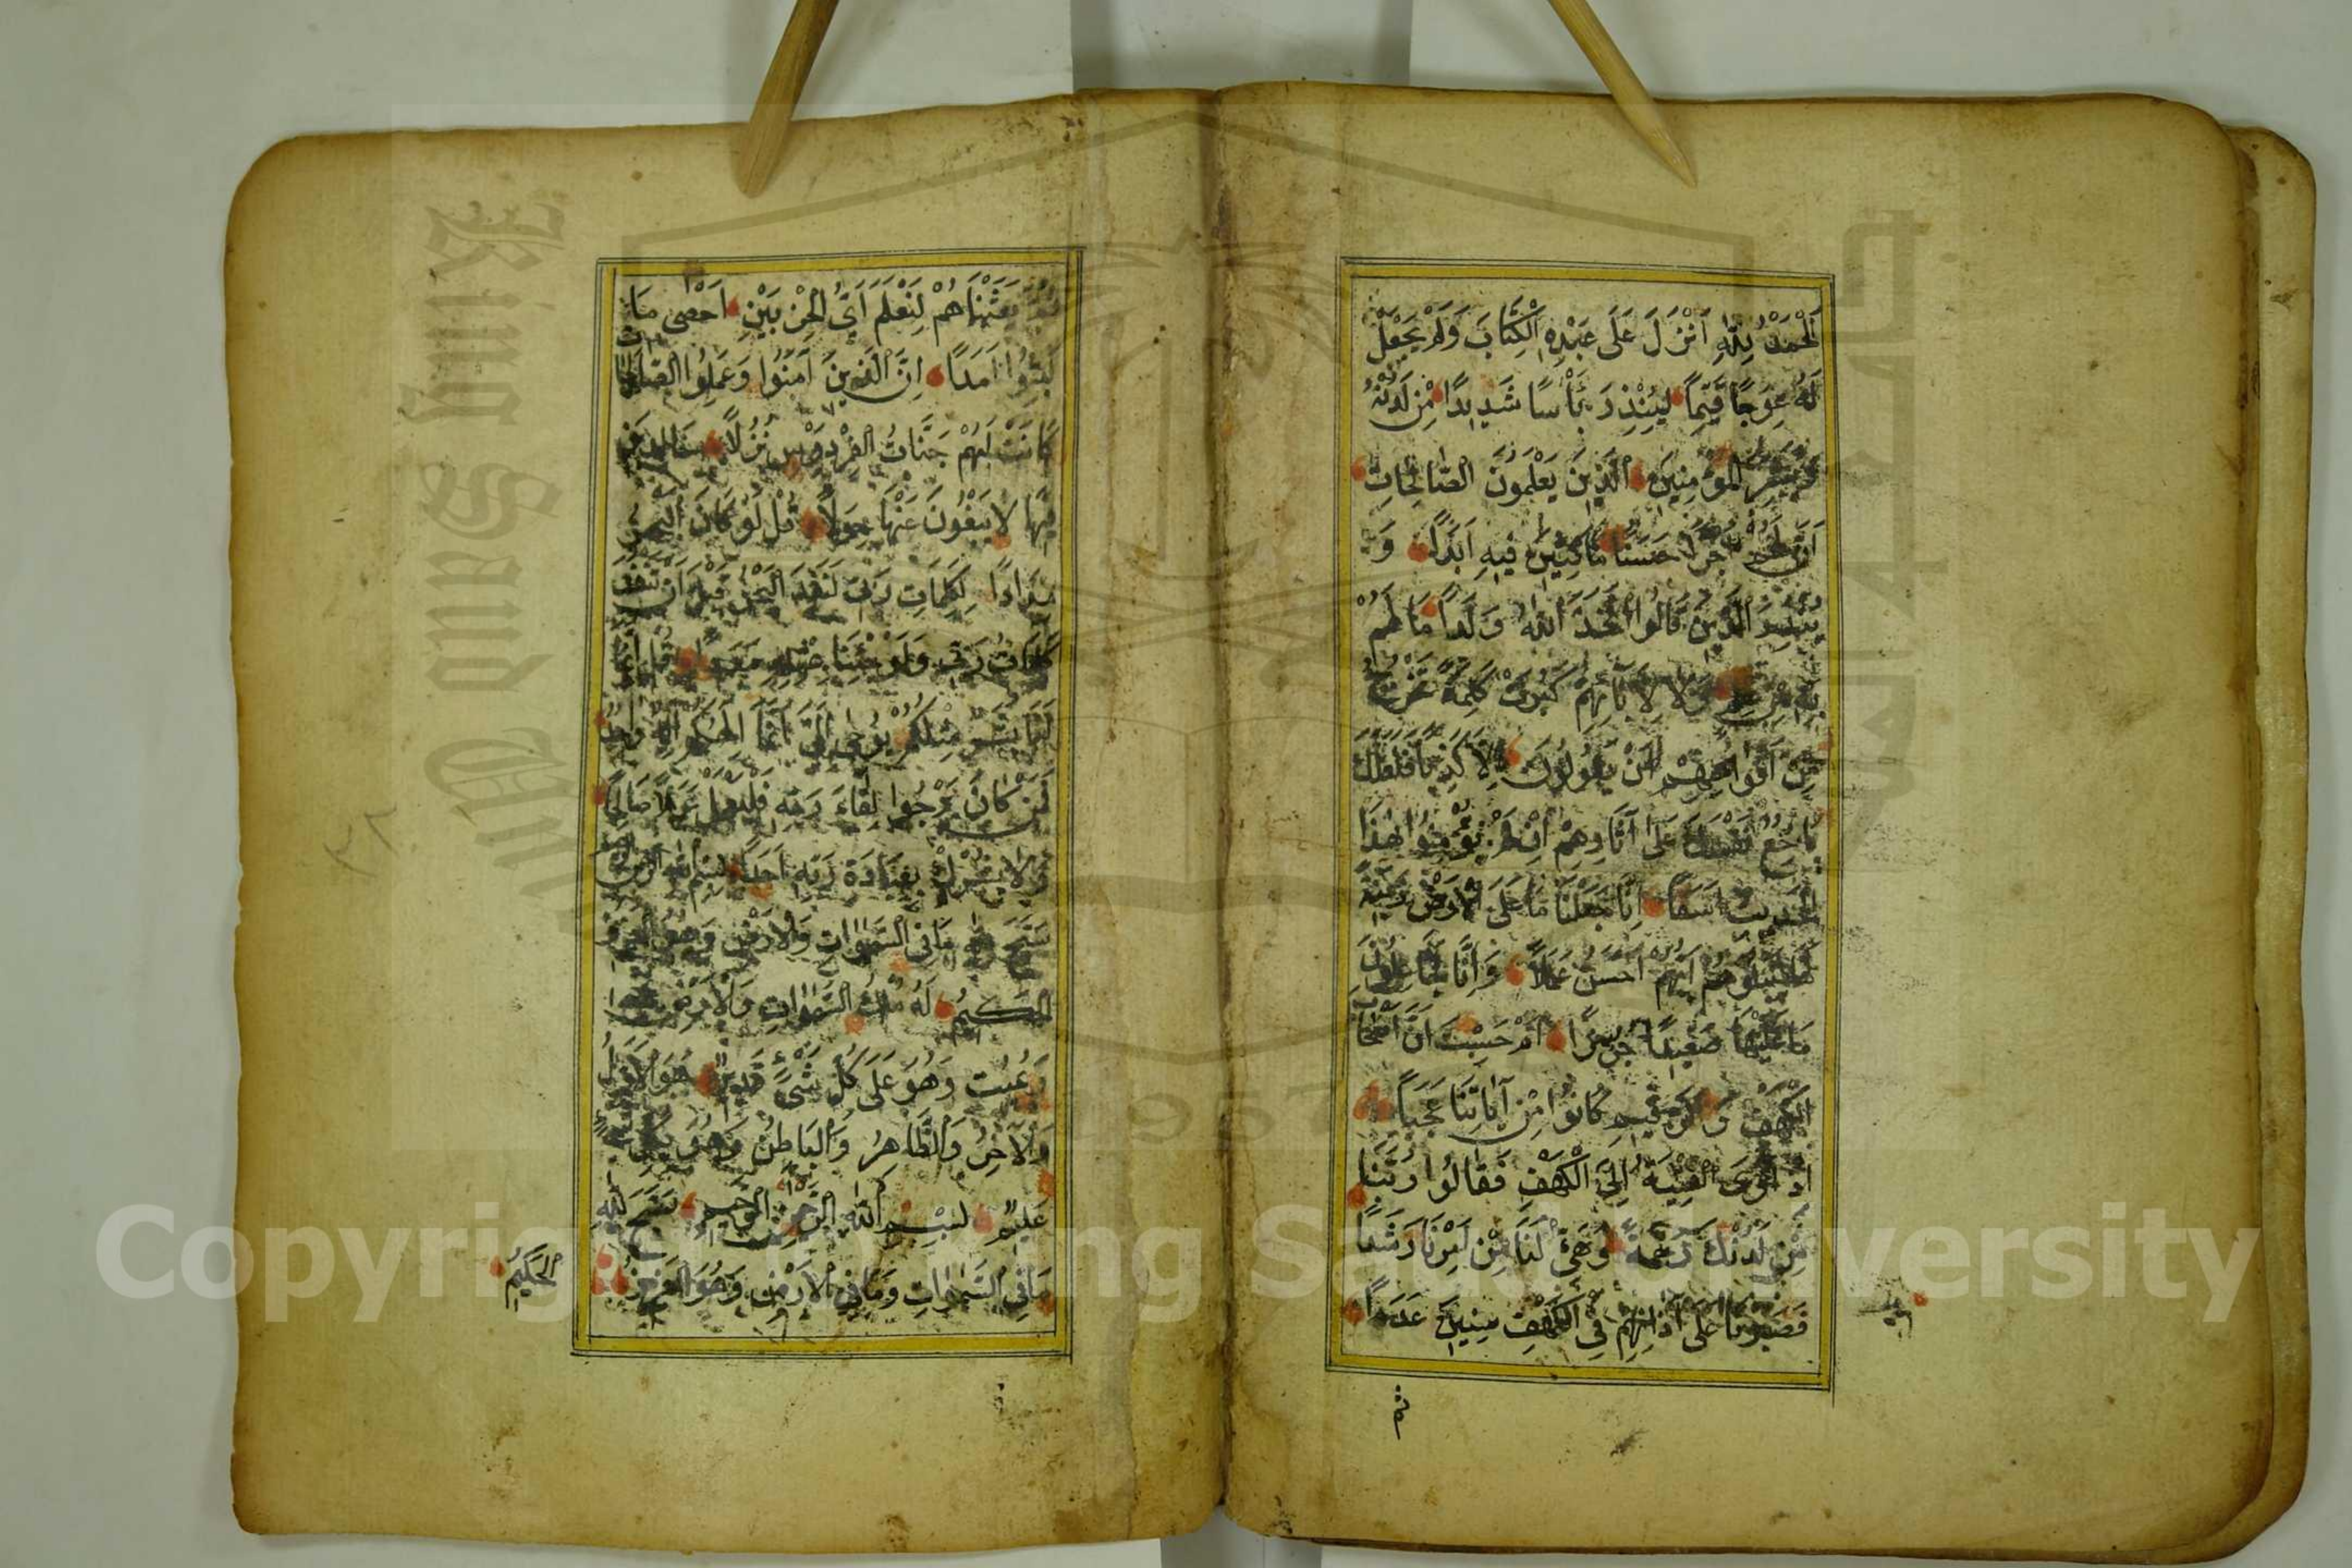 اَلْحَمْدُ لِلّٰهِ اَنْزَلَ عَلَى عَبْدِهِ الْكِتَابَ وَلَمْ يَجْعَلْ
لَهُ عِوَجًا قَيِّمًا لِيُنْذِرَ بَأْسًا شَدِيدًا مِنْ لَدُنْهُ
وَيُبَشِّرَ الْمُؤْمِنِينَ الَّذِينَ يَعْلَمُونَ الصَّالِحَاتِ
اَنَّ لَهُمْ اَجْرًا حَسَنًا مَاكِثِينَ فِيهِ اَبَدًا وَ
يُنْذِرَ الَّذِينَ قَالُوا اتَّخَذَ اللّٰهُ وَلَدًا مَا لَهُمْ
بِهِ مِنْ عِلْمٍ وَلَا لِاٰبَائِهِمْ كَبُرَتْ كَلِمَةً تَخْرُجُ
مِنْ اَفْوَاهِهِمْ اِنْ يَقُولُونَ اِلَّا كَذِبًا فَلَعَلَّكَ
بَاخِعٌ نَفْسَكَ عَلَى اٰثَارِهِمْ اِنْ لَمْ يُؤْمِنُوا بِهٰذَا
الْحَدِيثِ اَسَفًا اِنَّا جَعَلْنَا مَا عَلَى الْاَرْضِ زِينَةً
لَهَا لِنَبْلُوَهُمْ اَيُّهُمْ اَحْسَنُ عَمَلًا وَاِنَّا لَجَاعِلُونَ
مَا عَلَيْهَا صَعِيدًا جُرُزًا اَمْ حَسِبْتَ اَنَّ اَصْحَابَ
الْكَهْفِ وَالرَّقِيمِ كَانُوا مِنْ اٰيَاتِنَا عَجَبًا
اِذْ اَوَى الْفِتْيَةُ اِلَى الْكَهْفِ فَقَالُوا رَبَّنَا
مِنْ لَدُنْكَ رَحْمَةً وَهَيِّئْ لَنَا مِنْ اَمْرِنَا رَشَدًا
فَضَرَبْنَا عَلَى اٰذَانِهِمْ فِي الْكَهْفِ سِنِينَ عَدَدًا
ثم
ثُمَّ بَعَثْنَاهُمْ لِنَعْلَمَ اَيُّ الْحِزْبَيْنِ اَحْصٰى مَا
لَبِثُوا اَمَدًا اِنَّ الَّذِينَ اٰمَنُوا وَعَمِلُوا الصَّالِحَاتِ
كَانَتْ لَهُمْ جَنَّاتُ الْفِرْدَوْسِ نُزُلًا خَالِدِينَ
فِيهَا لَا يَبْغُونَ عَنْهَا حِوَلًا قُلْ لَوْ كَانَ الْبَحْرُ
مِدَادًا لِكَلِمَاتِ رَبِّي لَنَفِدَ الْبَحْرُ قَبْلَ اَنْ تَنْفَدَ
كَلِمَاتُ رَبِّي وَلَوْ جِئْنَا بِمِثْلِهِ مَدَدًا قُلْ اِنَّمَا
اَنَا بَشَرٌ مِثْلُكُمْ يُوحٰى اِلَيَّ اَنَّمَا اِلٰهُكُمْ اِلٰهٌ وَاحِدٌ
فَمَنْ كَانَ يَرْجُوا لِقَاءَ رَبِّهِ فَلْيَعْمَلْ عَمَلًا صَالِحًا
وَلَا يُشْرِكْ بِعِبَادَةِ رَبِّهِ اَحَدًا بِسْمِ اللّٰهِ الرَّحْمٰنِ
سَبَّحَ لِلّٰهِ مَا فِي السَّمٰوَاتِ وَالْاَرْضِ وَهُوَ الْعَزِيزُ
الْحَكِيمُ لَهُ مُلْكُ السَّمٰوَاتِ وَالْاَرْضِ يُحْيِي
وَيُمِيتُ وَهُوَ عَلَى كُلِّ شَيْءٍ قَدِيرٌ هُوَ الْاَوَّلُ
وَالْاٰخِرُ وَالظَّاهِرُ وَالْبَاطِنُ وَهُوَ بِكُلِّ
عَلِيمٌ بِسْمِ اللّٰهِ الرَّحْمٰنِ الرَّحِيمِ سَبَّحَ لِلّٰهِ
مَا فِي السَّمٰوَاتِ وَمَا فِي الْاَرْضِ وَهُوَ الْعَزِيزُ
الْحَكِيمُ
٢٨
King Saud University
1957
Copyright © King Saud University